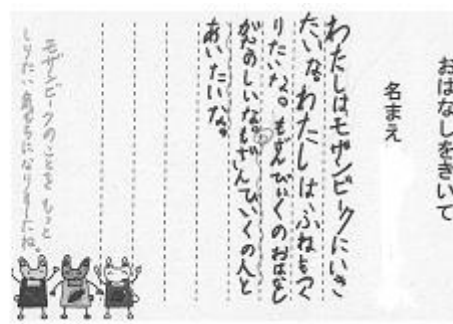 おはなしをきいて
名まえ
わたしはモザンビークにいき
たいな。わたしは、ふねもつく
りたいな。もざんびいくのおはなし
がたのしいな。もざんびいくの人と
あいたいな。
モザンビークのことを もっと
しりたい 気もちになりましたね。